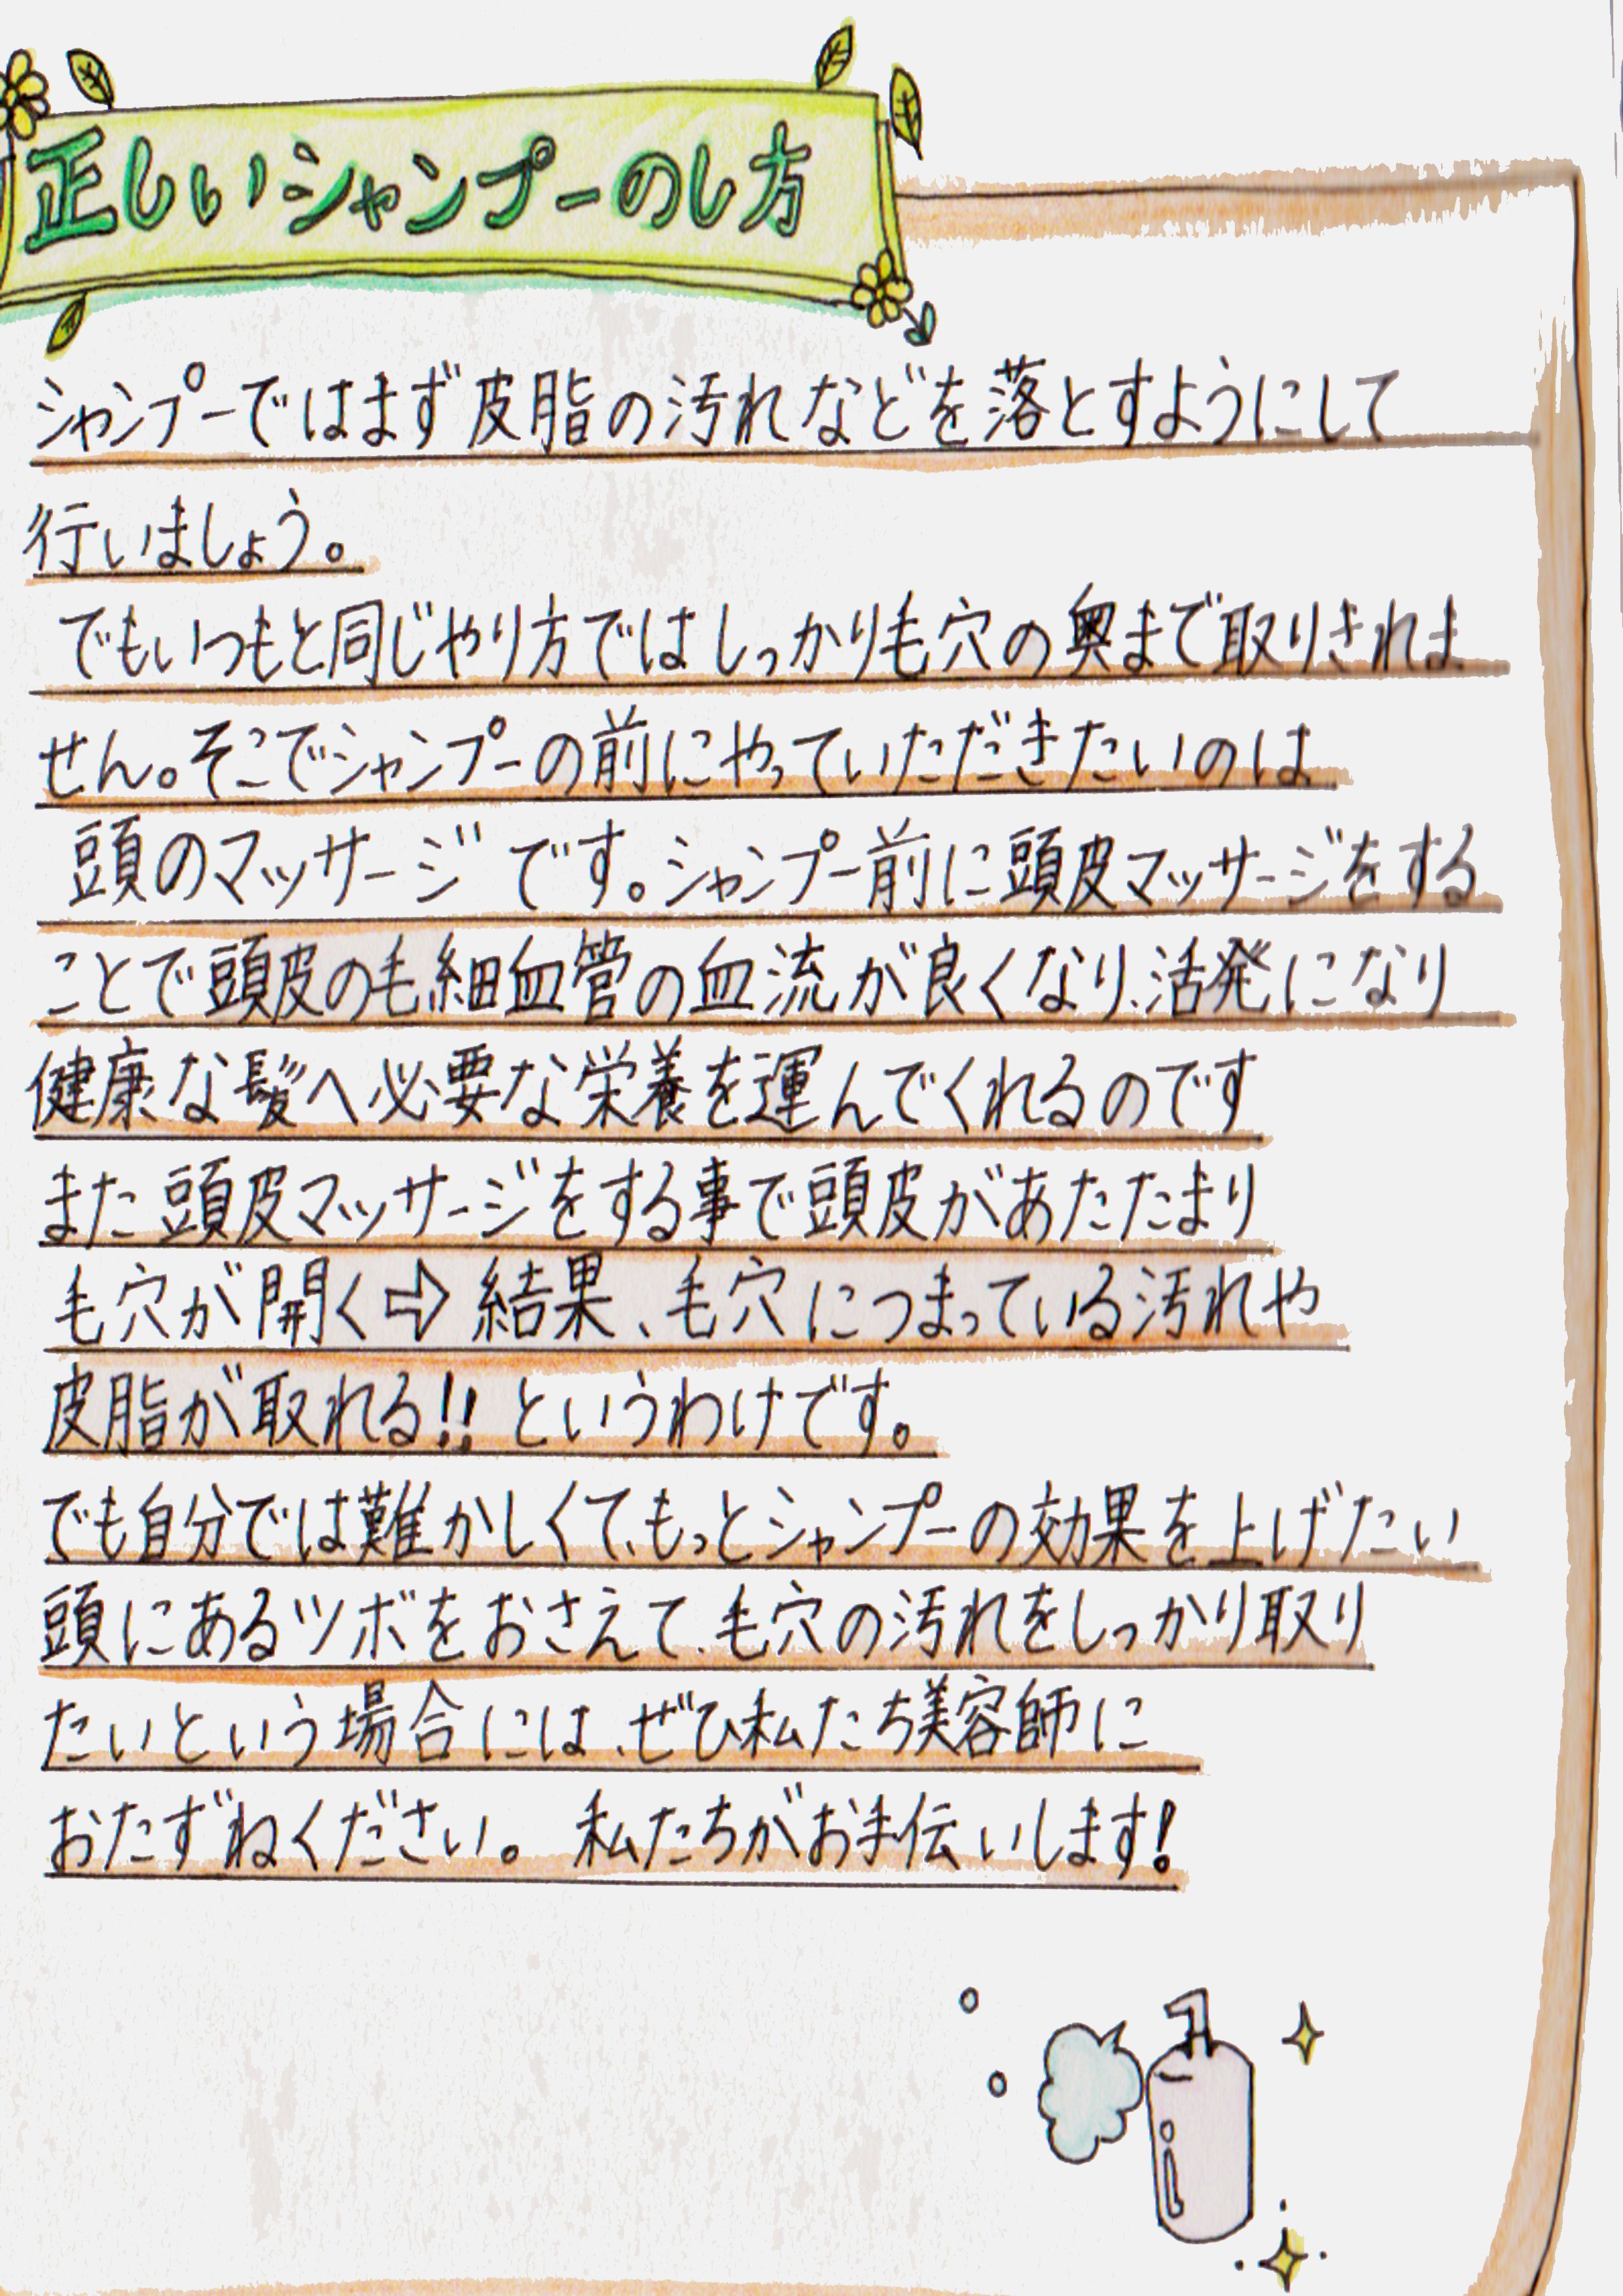 正しいシャンプーのし方
シャンプーではまず皮脂の汚れなどを落とすようにして
行いましょう。
でもいつもと同じやり方ではしっかり毛穴の奥まで取りきれま
せん。そこでシャンプーの前にやっていただきたいのは
頭のマッサージです。シャンプー前に頭皮マッサージをする
ことで頭皮の毛細血管の血流が良くなり、活発になり
健康な髪へ必要な栄養を運んでくれるのです
また頭皮マッサージをする事で頭皮があたたまり
毛穴が開く⇨結果、毛穴につまっている汚れや
皮脂が取れる!! というわけです。
でも自分では難かしくて、もっとシャンプーの効果を上げたい
頭にあるツボをおさえて、毛穴の汚れをしっかり取り
たいという場合には、ぜひ私たち美容師に
おたずねください。 私たちがお手伝いします!